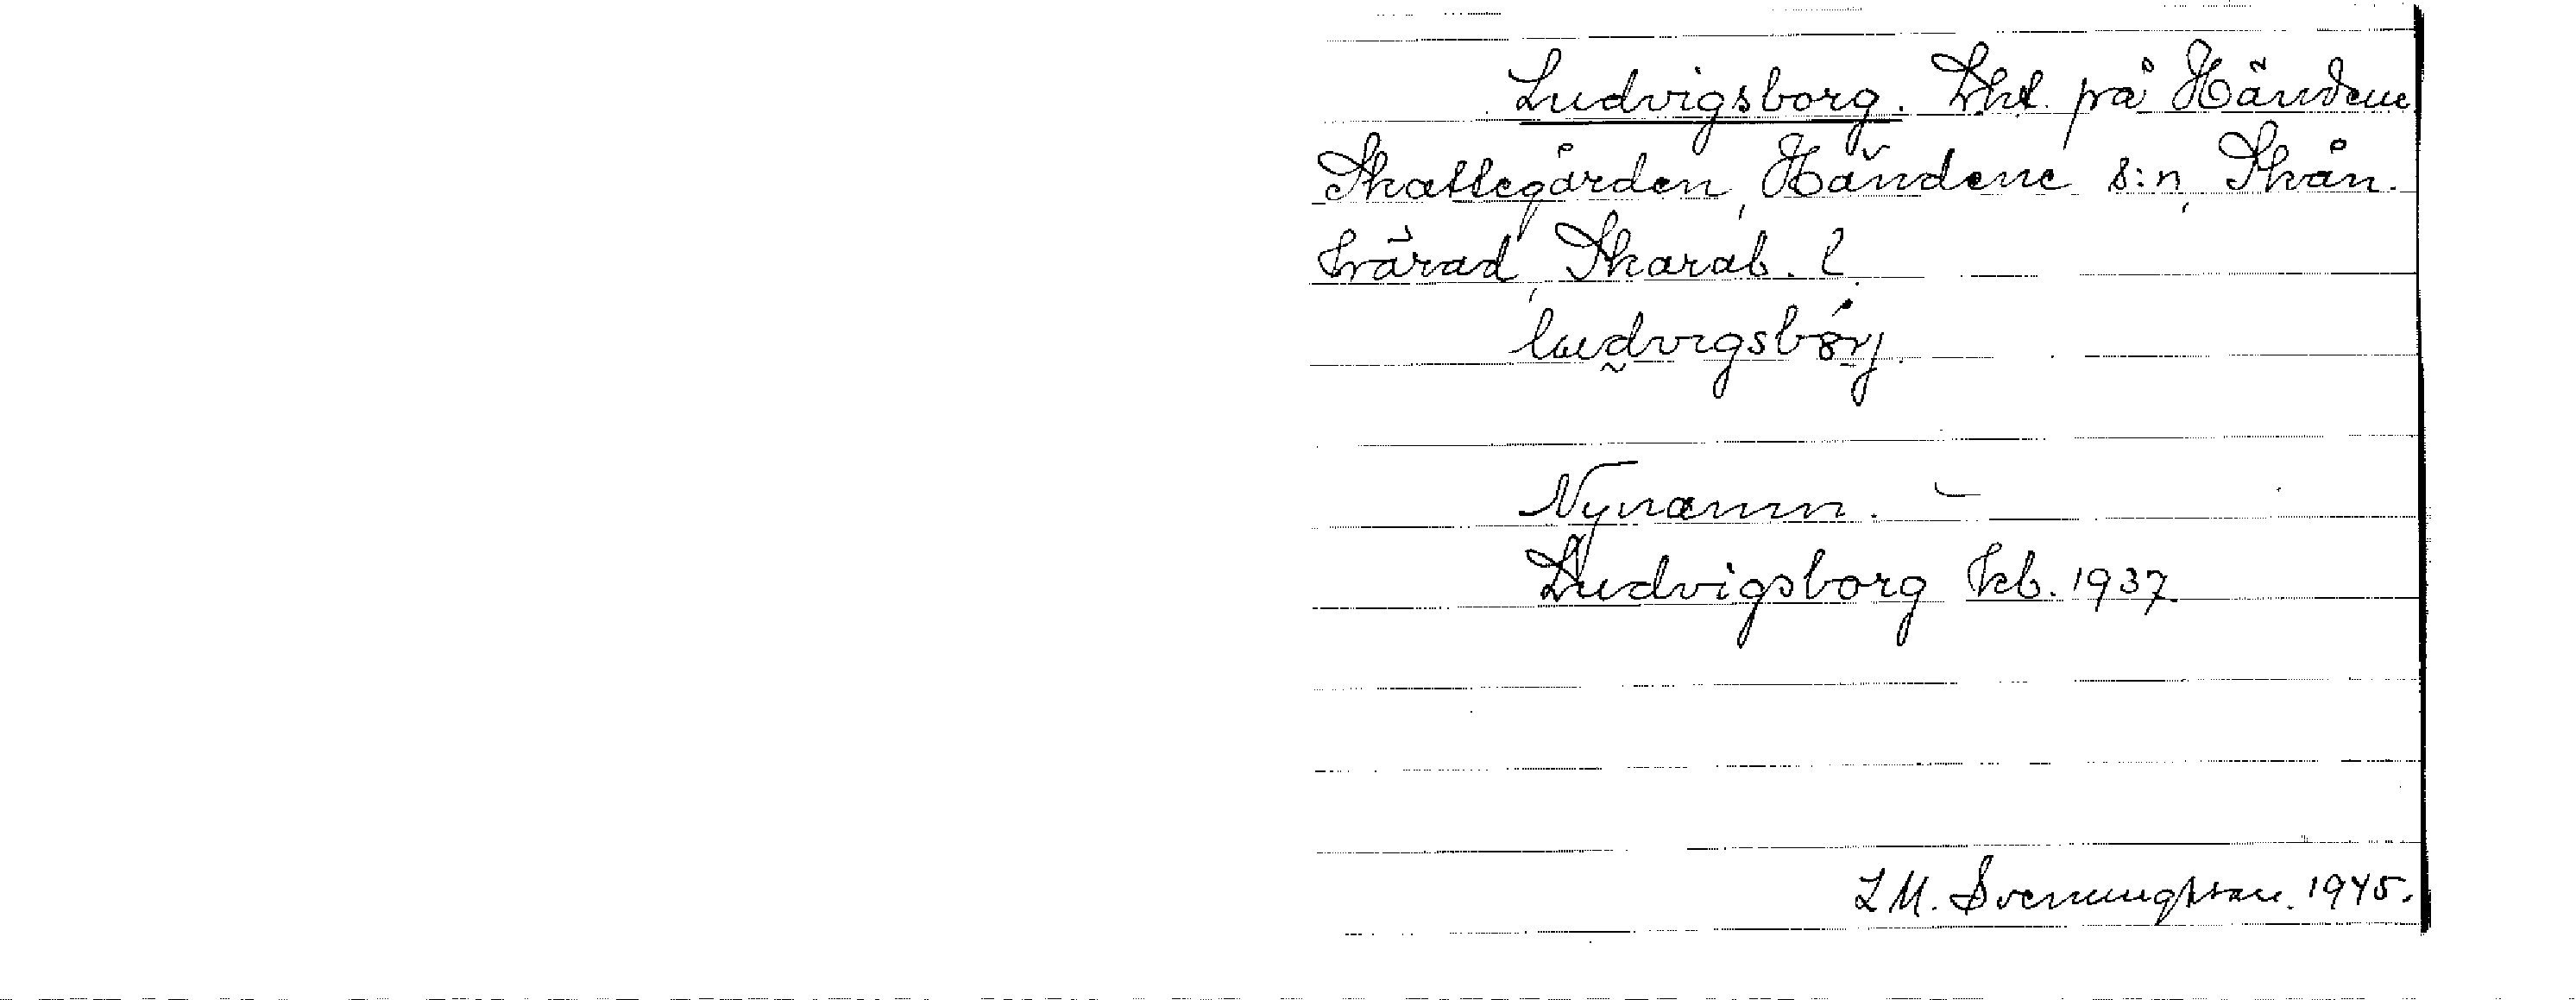 Ludvigsborg. Lht. på Händene
Skattegården, Händene s:n, Skån.
härad, Skarab. l.
Nynamn. –
Ludvigsborg kb. 1937
L M. Svenungsson. 1945.